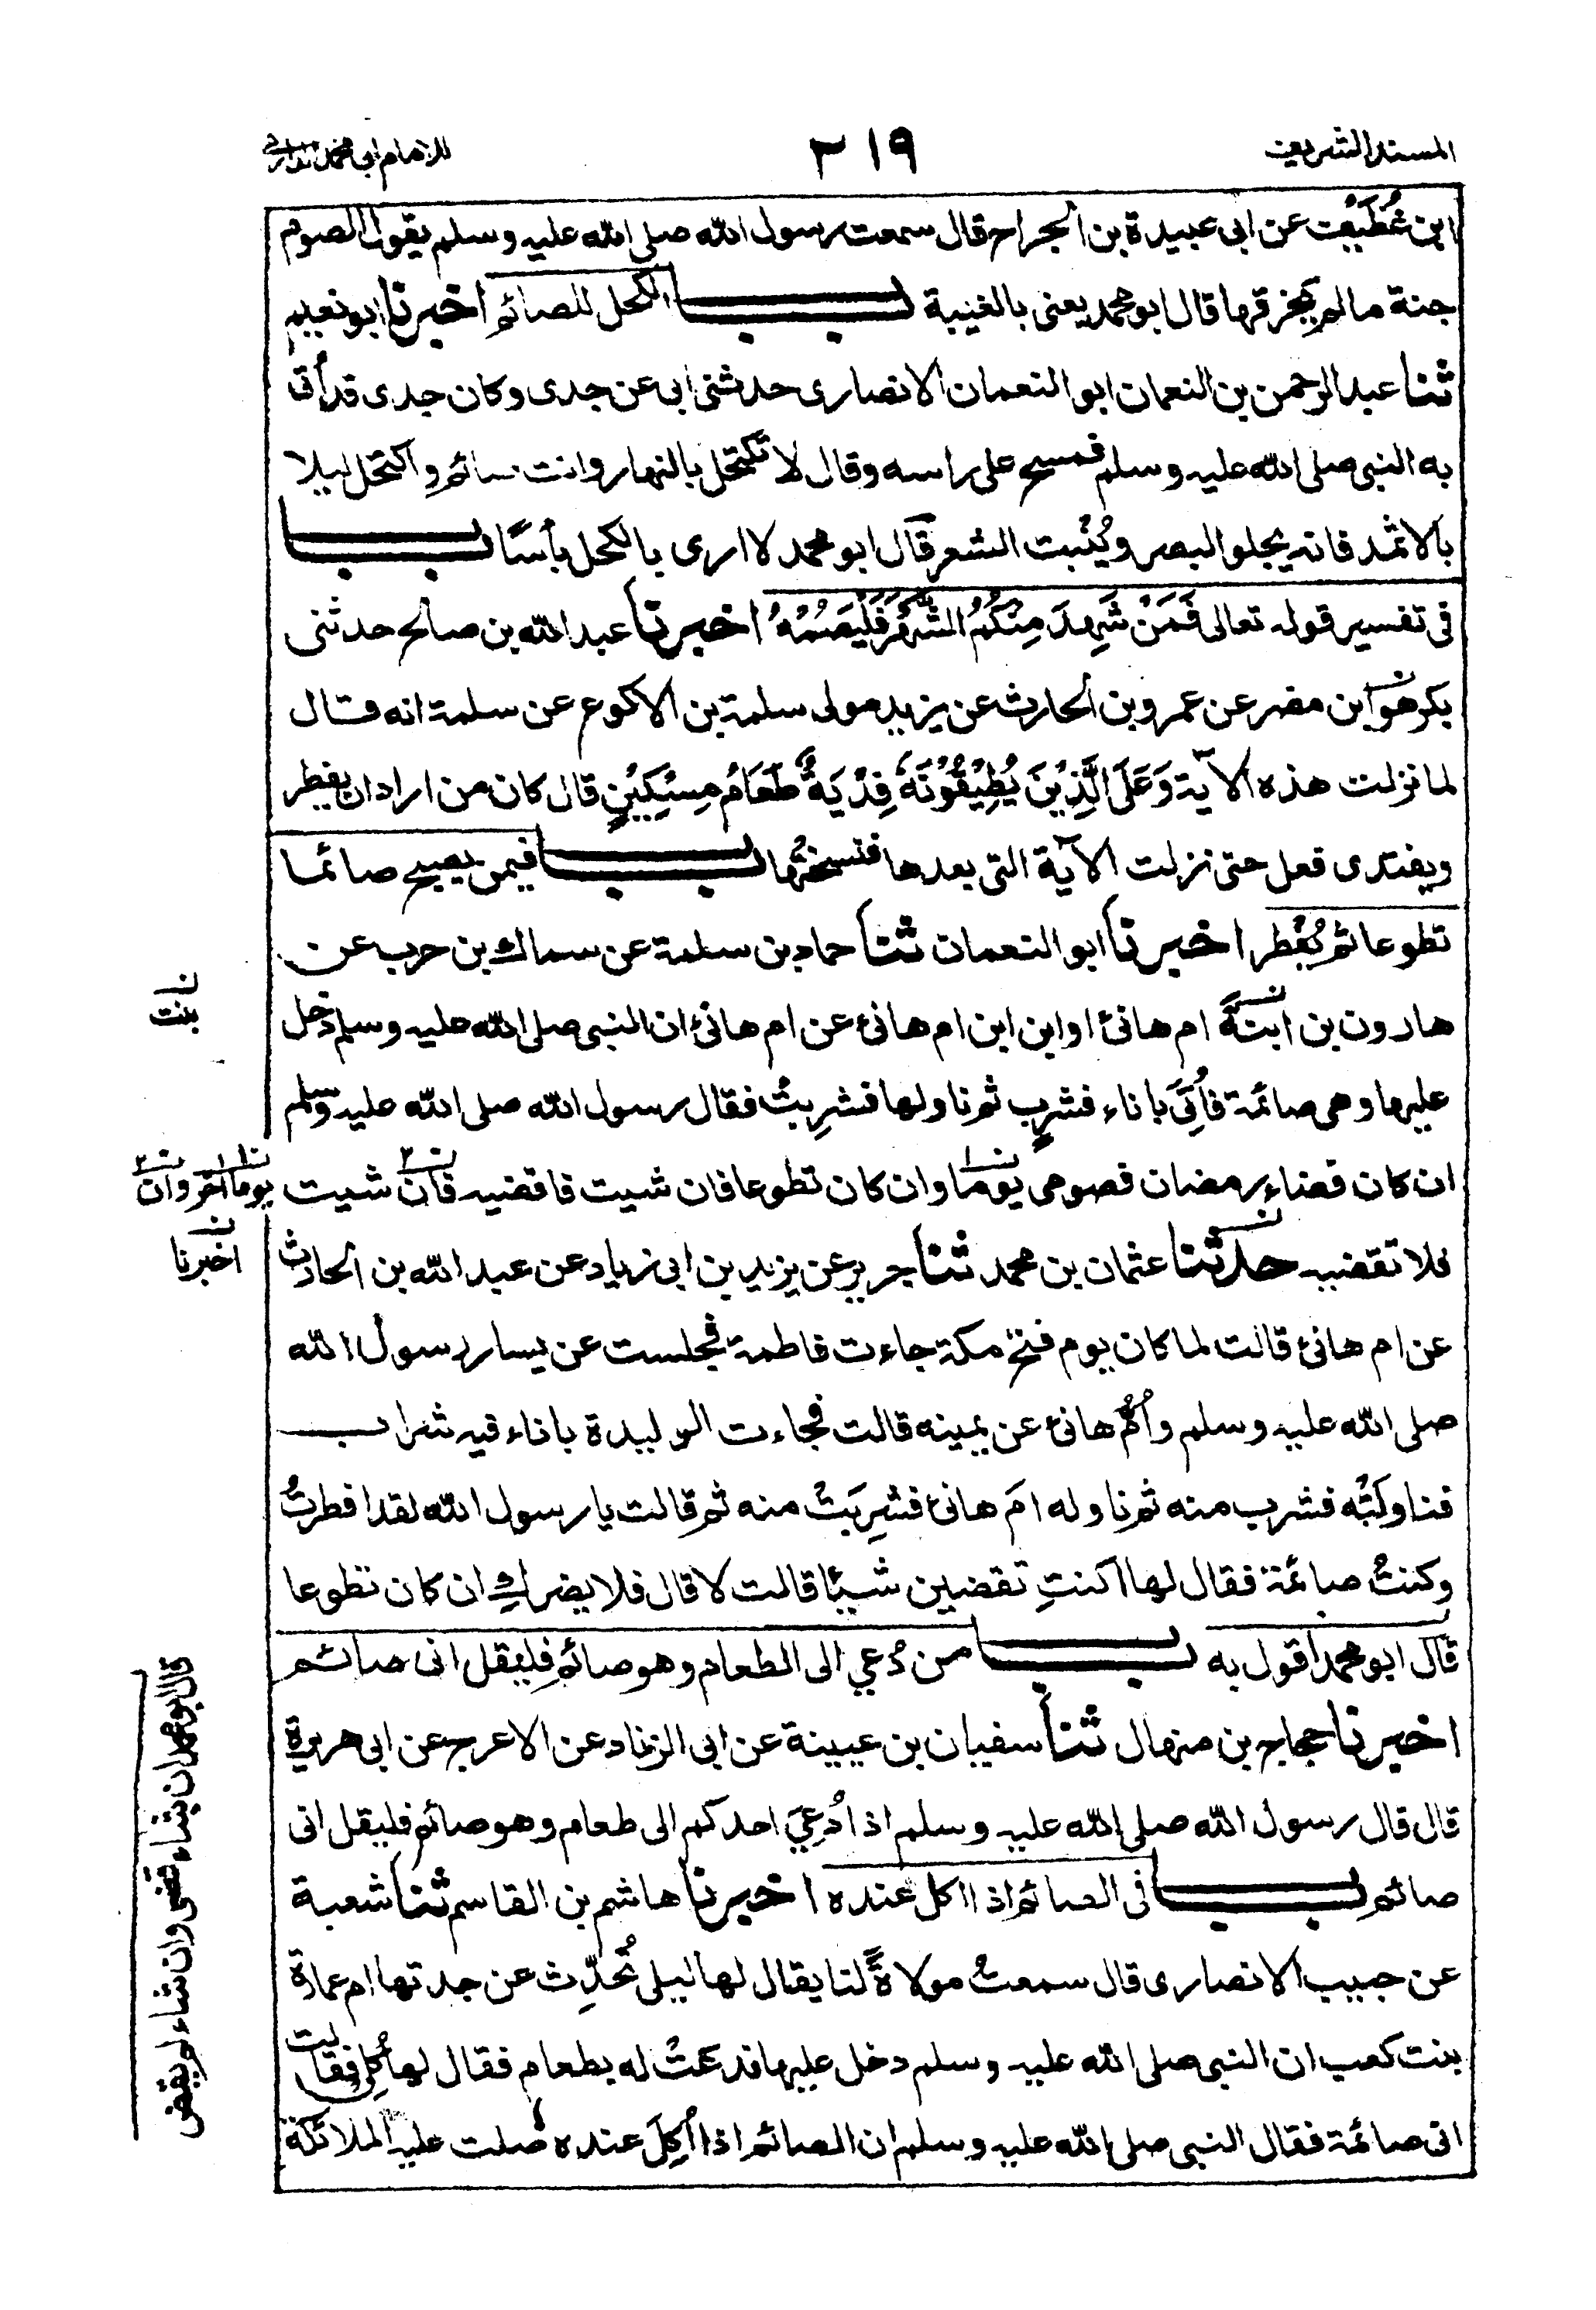 المسند الشريف
٢١٩
للامام ابي محمد الدارمي
ابن غُطَيْف عن ابى عبيدة بن الجراح قال سمعت رسول الله صلى الله عليه وسلم يقول الصوم
جنة مالم يخرقها قال ابو محمد يعنى بالغيبة باب الكحل للصائم اخبرنا ابو نعيم
ثنا عبد الرحمن بن النعمان ابو النعمان الانصارى حدثنى ابى عن جدى وكان جدى قد أتى
به النبى صلى الله عليه وسلم فمسح على راسه وقال لا تكتحل بالنهار وانت صائم واكتحل ليلا
بالاثمد فانه يجلو البصر ويُنْبت الشعر قال ابو محمد لا ارى بالكحل بأسًا باب
فى تفسير قوله تعالى فَمَنْ شَهِدَ مِنْكُمُ الشَّهْرَ فَلْيَصُمْهُ اخبرنا عبد الله بن صالح حدثنى
بكر هو ابن مضر عن عمرو بن الحارث عن يزيد مولى سلمة بن الاكوع عن سلمة انه قال
لما نزلت هذه الآية وَعَلَى الَّذِيْنَ يُطِيْقُوْنَهٗ فِدْيَةٌ طَعَامُ مِسْكِيْنٍ قال كان من اراد ان يفطر
ويفتدى فعل حتى نزلت الآية التى بعدها فنسختها باب فيمن يصبح صائما
تطوعا ثم يُفْطر اخبرنا ابو النعمان ثنا حماد بن سلمة عن سماك بن حرب عن
هارون بن ابنة ام هانئ او ابن ابن ام هانئ عن ام هانئ ان النبى صلى الله عليه وسلم دخل
عليها وهى صائمة فأُتِىَ باناء فشرب ثم ناولها فشرِبتْ فقال رسول الله صلى الله عليه وسلم
ان كان قضاء رمضان فصومى يوما وان كان تطوعا فان شيت فاقضيه فان شيت
فلا تقضيه حدثنا عثمان بن محمد ثنا جرير عن يزيد بن ابى زياد عن عبد الله بن الحارث
عن ام هانئ قالت لما كان يوم فتح مكة جاءت فاطمة فجلست عن يسار رسول الله
صلى الله عليه وسلم وأُمُّ هانئ عن يمينه قالت فجاءت الوليدة باناء فيه شراب
فناولَتْه فشرب منه ثم ناوله امَ هانئ فشرِبَتْ منه ثم قالت يا رسول الله لقد افطرتُ
وكنتُ صائمة فقال لها اكنتِ تقضين شيئا قالت لا قال فلا يضركِ ان كان تطوعا
قال ابو محمد اقول به باب من دُعي الى الطعام وهو صائم فليقل انى صائم
اخبرنا حجاج بن منهال ثنا سفيان بن عيينة عن ابى الزناد عن الاعرج عن ابى هريرة
قال قال رسول الله صلى الله عليه وسلم اذا دُعِيَ احدكم الى طعام وهو صائم فليقل انى
صائم باب فى الصائم اذا اكل عنده اخبرنا هاشم بن القاسم ثنا شعبة
عن حبيب الانصارى قال سمعتُ مولاةً لنا يقال لها ليلى تُحدِّث عن جدتها ام عمارة
بنت كعب ان النبى صلى الله عليه وسلم دخل عليها فدعتْ له بطعام فقال لها كُلى فقالت
انى صائمة فقال النبى صلى الله عليه وسلم ان الصائم اذا أُكِلَ عنده صلت عليه الملائكة
بنت
يوما آخر وان
اخبرنا
قال ابو محمد ان شاء قضى وان شاء لم يقض